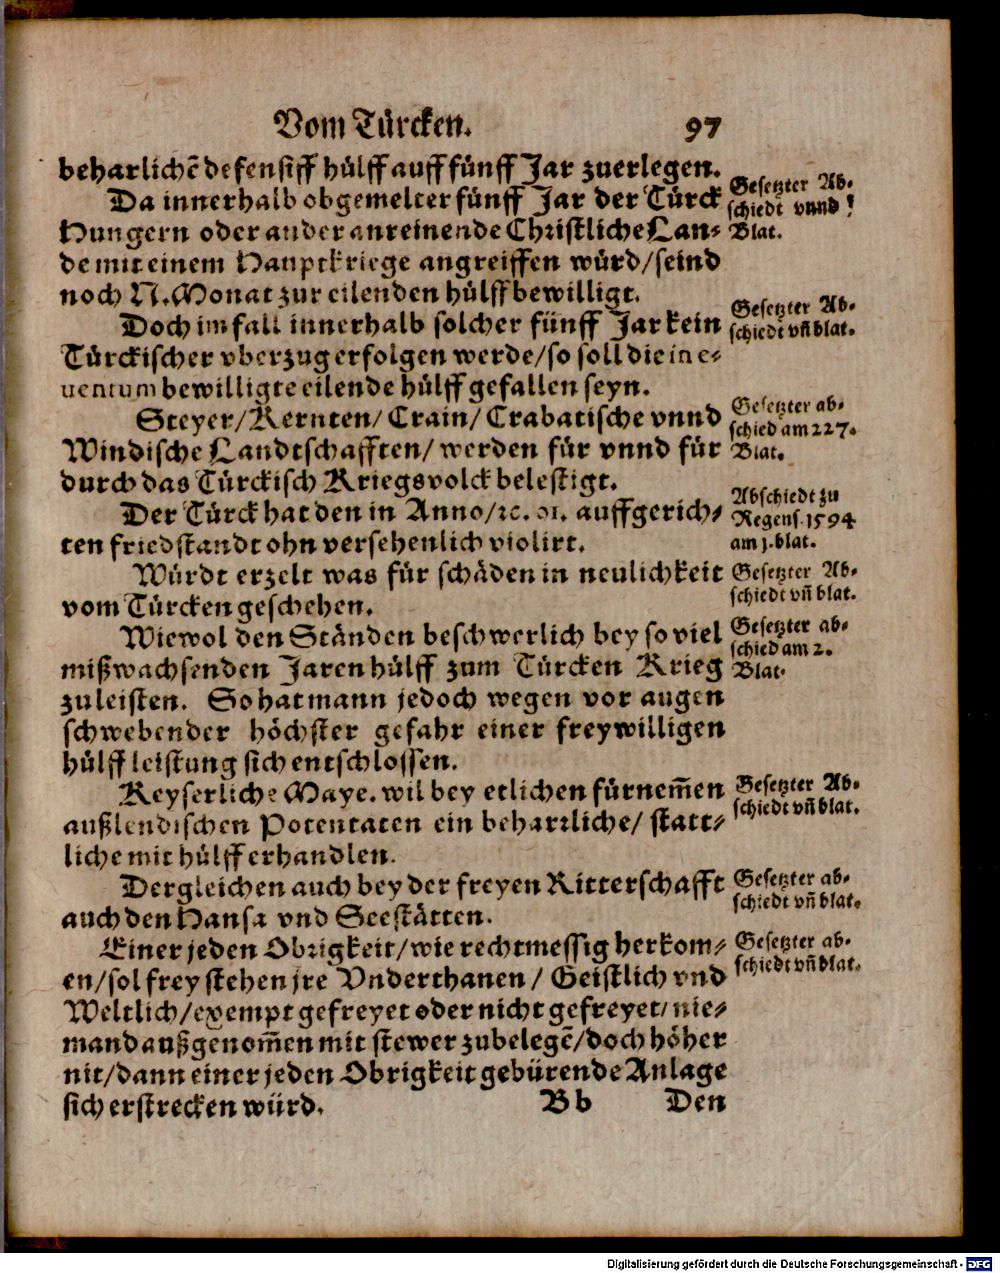 Vom Türcken. 97
beharlichẽ defensiff hülff auff fünff Jar zuerlegen.
Da innerhalb obgemelter fünff Jar der Türck
Hungern oder ander anreinende Christliche Lan-
de mit einem Hauptkriege angreiffen würd/seind
noch N. Monat zur eilenden hülff bewilligt.
Doch im fall innerhalb solcher fünff Jar kein
Türckischer vberzug erfolgen werde/so soll die in e-
uentum bewilligte eilende hülff gefallen seyn.
Steyer/Kernten/ Crain/ Crabatische vnnd
Windische Landtschafften/ werden für vnnd für
durch das Türckisch Kriegsvolck belestigt.
Der Türck hat den in Anno/ꝛc. 91. auffgerich-
ten friedstandt ohn versehenlich violirt.
Würdt erzelt was für schäden in neulichkeit
vom Türcken geschehen.
Wiewol den Ständen beschwerlich bey so viel
mißwachsenden Jaren hülff zum Türcken Krieg
zuleisten. So hat mann jedoch wegen vor augen
schwebender höchster gefahr einer freywilligen
hülff leistung sich entschlossen.
Keyserliche Maye. wil bey etlichen fürnem̃en
außlendischen Potentaten ein beharrliche/ statt-
liche mit hülff erhandlen.
Dergleichen auch bey der freyen Ritterschafft
auch den Hansa vnd Seestätten.
Einer jeden Obrigkeit/wie rechtmessig herkom-
en/sol frey stehen jre Vnderthanen/ Geistlich vnd
Weltlich/exempt gefreyet oder nicht gefreyet/ nie-
mand außgenom̃en mit stewer zubelegẽ/doch höher
nit/dann einer jeden Obrigkeit gebürende Anlage
sich erstrecken würd. Bb Den
Gesetzter Ab-
schiedt vnnd !
Blat.
Gesetzter Ab-
schiedt vñ blat.
Gesetzter ab-
schied am 227.
Blat.
Abschiedt zu
Regens. 1594
am j. blat.
Gesetzter Ab-
schiedt vñ blat.
Gesetzter ab-
schied am 2.
Blat.
Gesetzter Ab-
schiedt vñ blat.
Gesetzter ab-
schiedt vñ blat.
Gesetzter ab-
schiedt vñ blat.
Digitalisierung gefördert durch die Deutsche Forschungsgemeinschaft - DFG